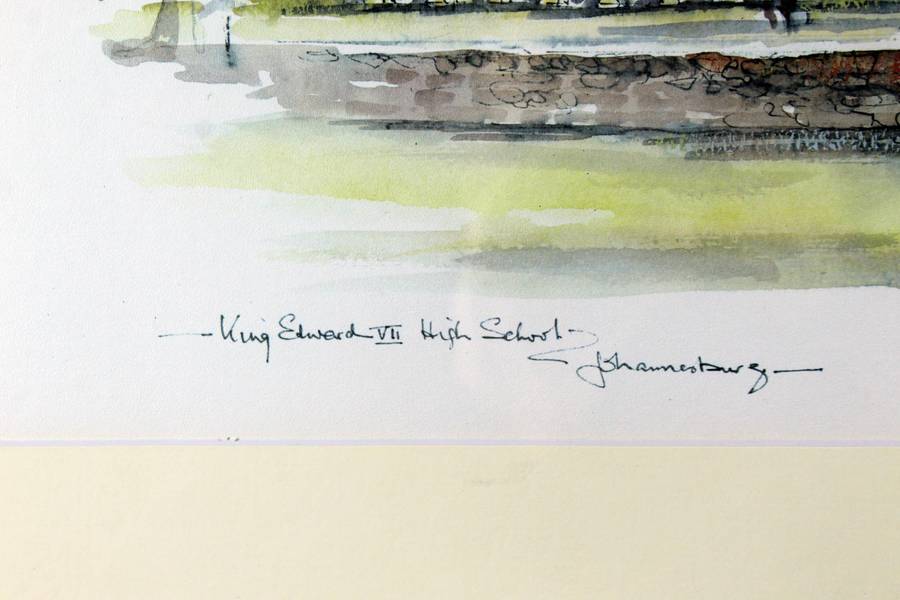 King Edward VII High School
Johannesburg